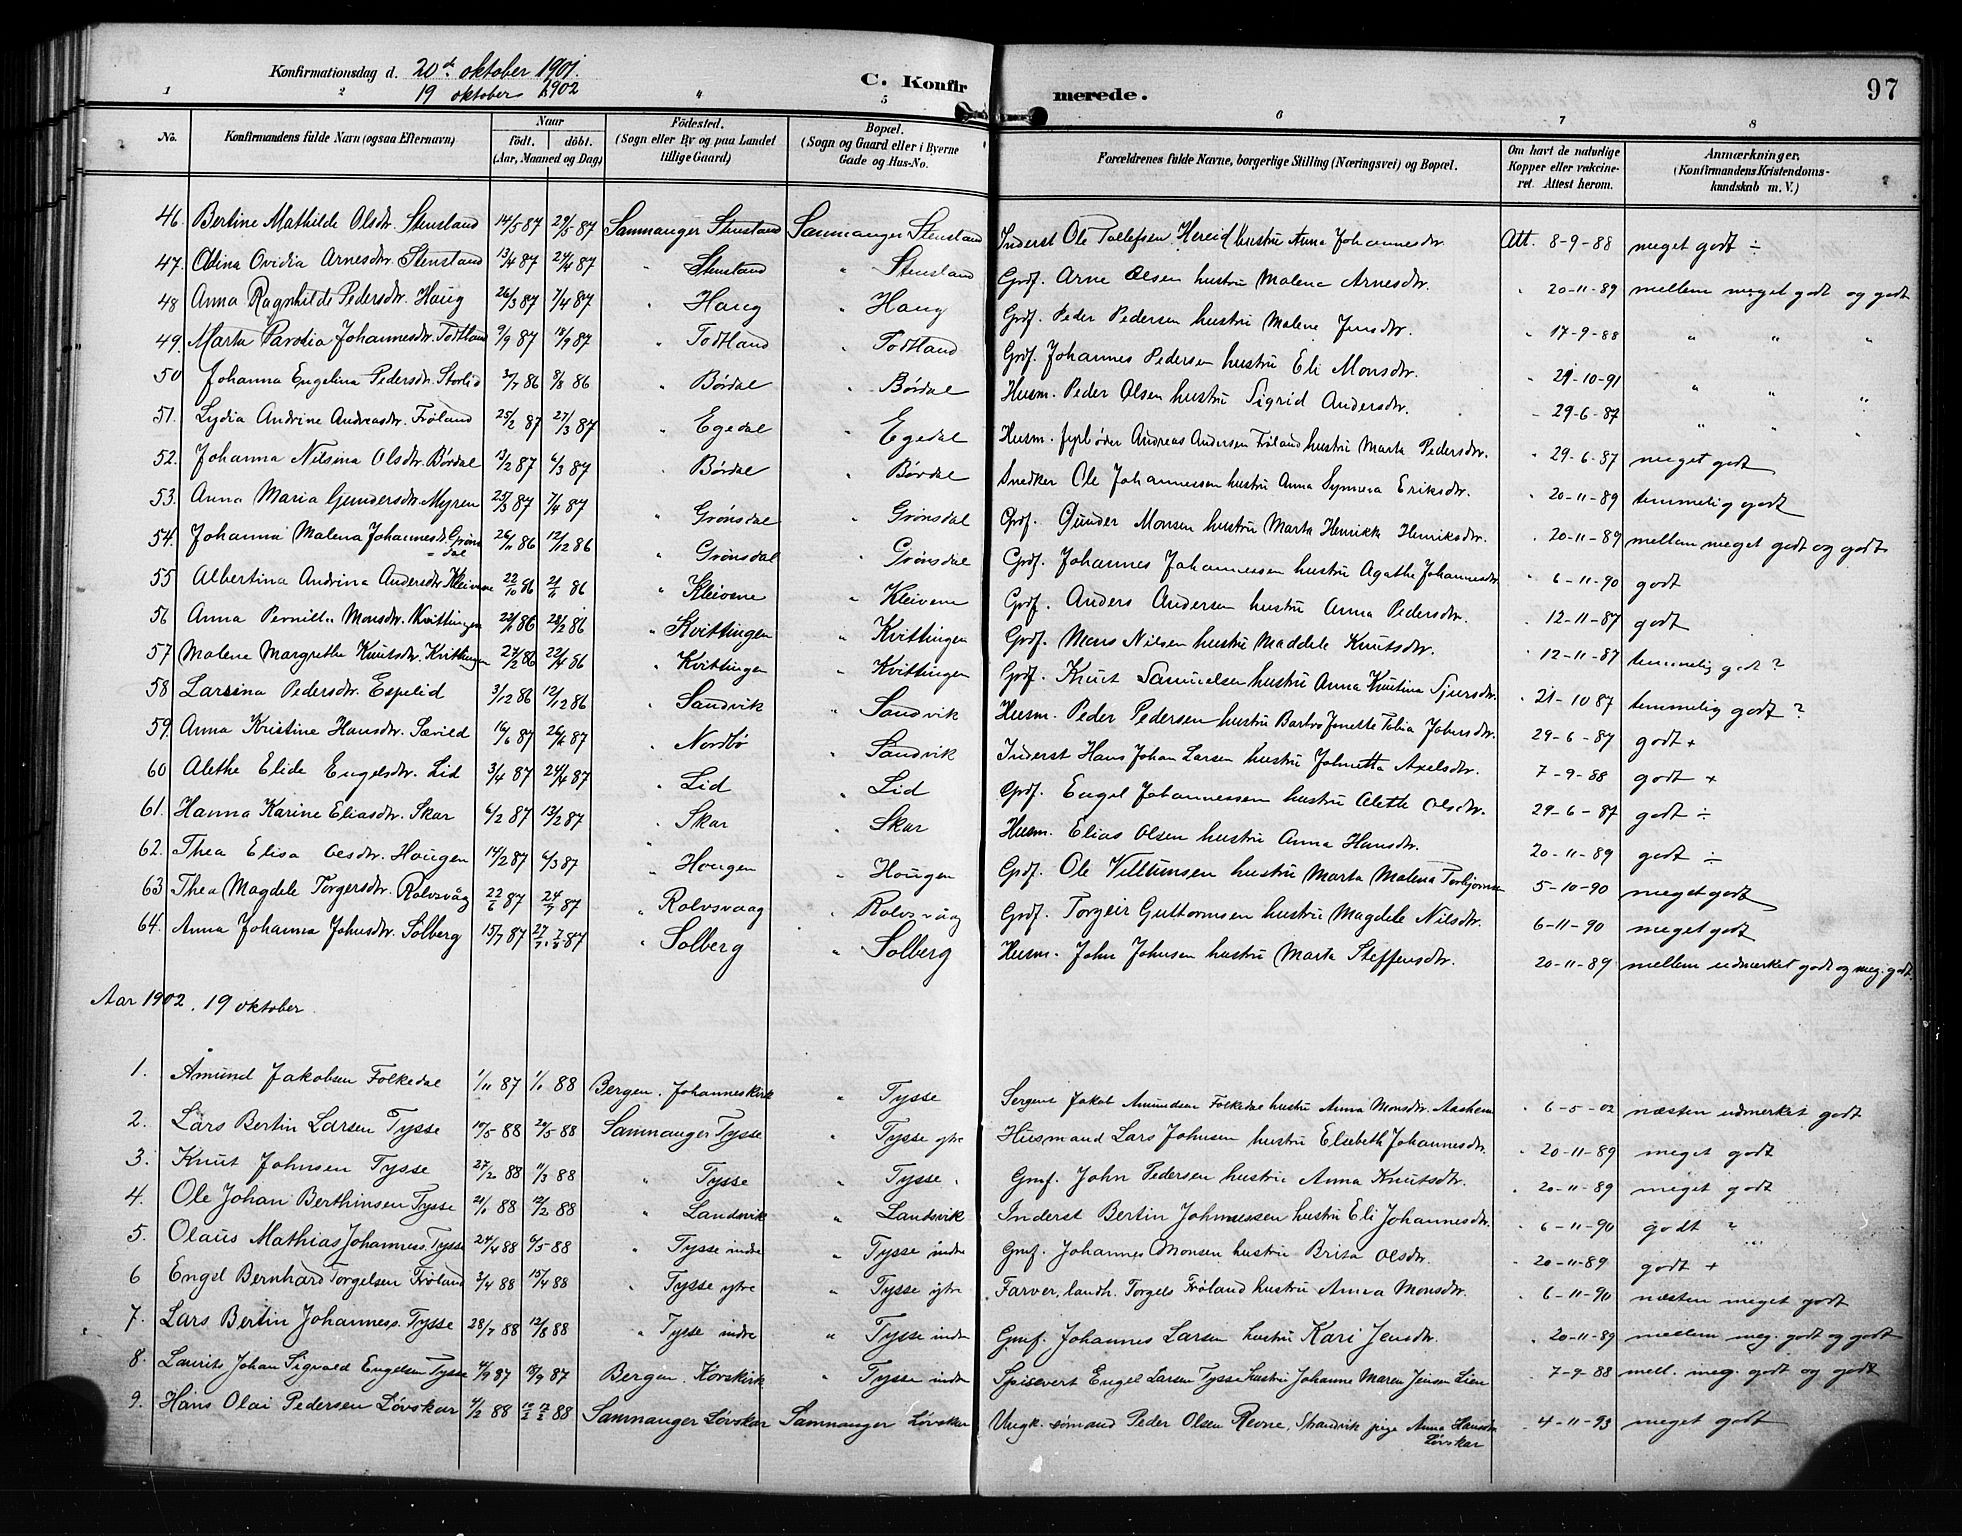 Konfirmationsdag d. 20de oktober 1901.
19 oktober 1902
C. Konfirmerede.
97
1 2 " 5 6 7 8
No. Konfirmandens fulde Navn (ogsaa Efternavn) Naar födt. döbt. (Aar, Maaned og Dag) Födested. (Sogn eller By og paa Landet tillige Gaard) Bopæl. (Sogn og Gaard eller i Byerne Gade og Hus-No. Forældrenes fulde Navne, borgerlige Stilling (Næringsvei) og Bopæl. Om havt de naturlige Kopper eller vakcineret. Attest herom. Anmærkninger. (Konfirmandens Kristendomskundskab m. V.)
46. Bertine Mathilde Olsdtr. Stensland 14/5 87 29/5 87 Samnanger Stensland Samnanger Stensland Inderst Ole Tollefsen Hereid hustru Anna Johannesdtr. Att. 8-9-88 meget godt ÷
47. Odina Ovidia Arnesdtr. Stensland 13/4 87 24/4 87 " Stensland " Stensland Grdf. Arne Olsen hustru Malena Arnesdtr. " 20-11-89 mellem meget godt og godt
48 Anna Ragnhilde Pedersdtr. Haug 26/3 87 7/4 87 " Haug " Haug Grdf. Peder Pedersen hustru Malene Jensdtr. " 17-9-88 " " "
49. Marta Johannesdtr. Todtland 9/9 87 18/9 87 " Todtland " Todtland Grdf. Johannes Pedersen hustru Eli Monsdtr. " 29-10-91 " " "
50 Johanna Engelina Pedersdtr. Storlid 3/7 86 8/8 86 " Bördal " Bördal Husm. Peder Olsen hustru Sigrid Andersdtr. " 29-6-87 " " "
51. Lydia Andrine Andreasdtr. Fröland 25/2 87 27/3 87 " Egedal " Egedal Husm. fyrböder Andreas Andersen Fröland hustru Marta Pedersdtr. " 29-6-87 meget godt
52. Johanna Nilsina Olsdtr. Bördal 13/2 87 6/3 87 " Bördal " Bördal Snedker Ole Johannessen hustru Anna Synneva Eriksdtr. " 20-11-89 temmelig godt
53. Anna Maria Gundersdtr. Myren 25/3 87 7/4 87 " Grönsdal " Grönsdal Grdf. Gunder Monsen hustru Marta Henrikka Henriksdtr. " 20-11-89 mellem meget godt og godt
54. Johanna Malena Johannesdtr. Grönsdal 26/11 86 12/12 86 " Grönsdal " Grönsdal Grdf. Johannes Johannessen hustru Agathe Johannesdtr " 6-11-90 godt
55 Albertina Andrina Andersdtr Kleivene 22/10 86 21/11 86 " Kleivene " Kleivene Grdf. Anders Andersen hustru Anna Pedersdtr. " 12-11-87 godt
56 Anna Pernille Monsdtr. Kvittingen 86 86 " Kvittingen " Kvittingen Grdf. Mons Nilsen hustru Maddele Knutsdtr. " 12-11-87 temmelig godt ?
57 Malene Margrethe Knutsdtr. Kvittingen 86 86 " Kvittingen " Kvittingen Grdf. Knut Samuelsen hustru Anna Knutina Sjursdtr. " 21-10 87 temmelig godt ?
58 Larsina Pedersdtr. Espelid 3/12 86 12/12 86 " Sandvik " Sandvik Husm. Peder Pedersen hustru Barbro Jenette Tobia Jobsdtr. 29-6-87 godt +
59. Anna Kristine Hansdtr. Sævild 87 87 " Nordbö " Sandvik Inderst Hans Johan Larsen hustru Johnetta Axelsdtr. 7-9-88 godt +
60 Alethe Elide Engelsdtr. Lid 3/4 87 24/4 87 " Lid " Lid Grdf. Engel Johannessen hustru Alette Olsdtr. 29-6-87 godt ÷
61. Hanna Karine Eliasdtr. Skar 6/2 87 13/2 87 " Skar " Skar Husm. Elias Olsen hustru Anna Hansdtr. 20-11-89 godt ÷
62. Thea Elisa Olsdtr. Hougen 14/2 87 6/3 87 " Hougen " Hougen Grdf. Ole Villumsen hustru Marta Malena Torbjörnsen 5-10-90 meget godt
63 Thea Magdele Torgersdtr. Rolvsvåg 22/6 87 24/7 87 " Rolvsvaag " Rolvsvåg Grdf. Torgeir Guttormsen hustru Magdele Nilsdtr. 6-11-90 meget godt
64. Anna Johanna Johnsdtr. Solberg 15/7 87 87 " Solberg " Solberg Husm. John Johnsen hustru Marta Steffensdtr. 20-11-89 mellem udmerket godt og meg. godt.
Aar 1902. 19 oktober.
1. Åmund Jakobsen Folkedal 1/11 87 1/1 88 Bergen. Johanneskirk " Tysse Sergent Jakob Amundsen Folkedal hustru Anna Monsdtr. Aasheim " 6-5-02 næsten udmerket godt
2. Lars Bertin Larsen Tysse 10/5 88 20/5 88 Samnanger Tysse " Tysse ytre Husmand Lars Johnsen hustru Elsebeth Johannesdtr. " 20-11-89 meget godt
3. Knut Johnsen Tysse 27/2 88 11/3 88 " Tysse " Tysse. Gmf. John Pedersen hustru Anna Knutsdtr. " 20-11-89 meget godt
4. Ole Johan Berthinsen Tysse 21/1 88 12/2 88 " Landsvik " Landsvik Inderst Bertin Johnnessen hustru Eli Johannesdtr. " 6-11-90 godt "
5. Olaus Mathias Johanness. Tysse 24/4 88 6/5 88 " Tysse indre " Tysse indre Gmf. Johannes Monsen hustru Brita Olsdtr. " 20-11-89 godt +
6 Engel Bernhard Torgelsen Fröland 2/4 88 15/4 88 " Tysse ytre " Tysse ytre Farver, landh. Torgels Fröland hustru Anna Monsdtr. " 6-11-90 næsten meget godt
7. Lars Bertin Johanness. Tysse 28/7 88 12/8 88 " Tysse indre " Tysse indre Gmf. Johannes Larsen hustru Kari Jensdtr. " 20-11-89 mellem meg. godt og godt
8. Laurits Johan Sigvald Engelsen Tysse 4/9 87 18/9 87 Bergen. Korskirk " Tysse indre Spisevert Engel Larsen Tysse hustru Johanne Maren Jensen Lien " 7-9-88 mell. meg. godt og godt
9. Hans Olai Pedersen Lövskar 4/2 88 88 Samnanger Lövskar Samnanger Lövskar Ungk. sömand Peder Olsen Revne, Strandvik pige Anna Hansdtr Lövskar " 4-11-93 meget godt